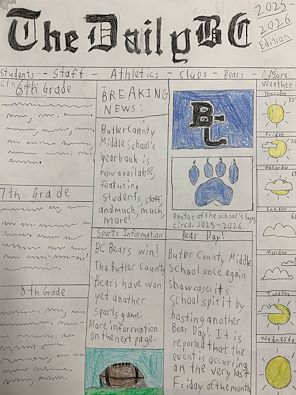 The Daily BC
2025-
2026
Edition
Students - Staff - Athletics - Clubs - Bears - & More
6th Grade
BREAKING
NEWS:
Butler County
Middle School's
yearbook is
now available,
featuring
students, staff,
and much, much
more!
BC
Photos of the school's logos
circa. 2025-2026.
7th Grade
8th Grade
Sports Information
BC Bears win!
The Butler County
Bears have won
yet another
sports game.
More information
on the next page.
Bear Day!
Butler County Middle
School once again
showcases its
school spirit by
hosting another
Bear Day! It is
reported that the
event is occurring
on the very last
Friday of the month
Weather
Thursday
Friday
Saturday
Sunday
Monday
Tuesday
Wednesday